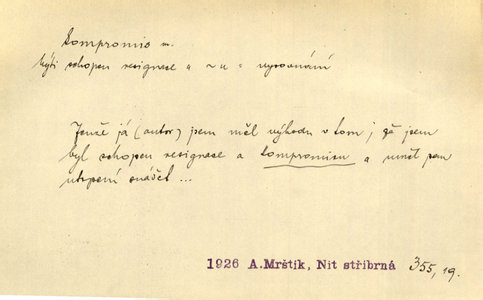 kompromis m.
býti schopen resignace a ~u = vyrovnání
Jenže já (autor) jsem měl výhodu v tom, že jsem
byl schopen resignace a kompromisu a uměl jsem
utrpení snášet ...
1926 A.Mrštík, Nit stříbrná 355, 19.